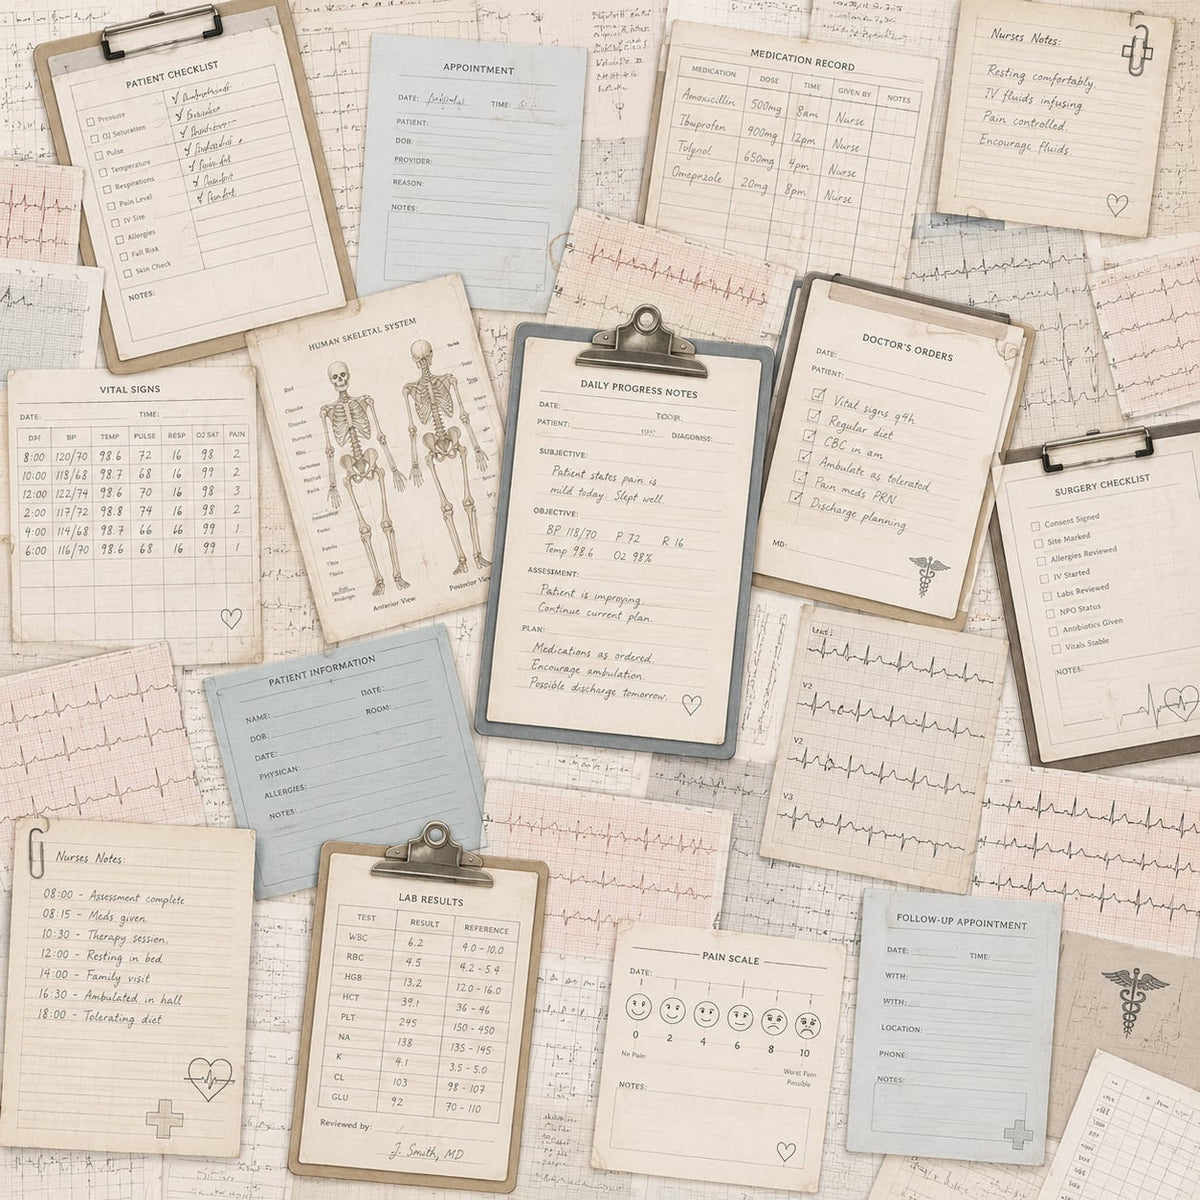 PATIENT CHECKLIST
Pressure
O2 Saturation
Pulse
Temperature
Respirations
Pain Level
IV Site
Allergies
Fall Risk
Skin Check
NOTES:
APPOINTMENT
DATE: TIME:
PATIENT:
DOB:
PROVIDER:
REASON:
NOTES:
MEDICATION RECORD
MEDICATION DOSE TIME GIVEN BY NOTES
Amoxicillin 500mg 8am Nurse
Ibuprofen 400mg 12pm Nurse
Tylynol 650mg 4pm Nurse
Omeprzole 20mg 8pm Nurse
Nurses Notes:
Resting comfortably.
IV fluids infusing
Pain controlled.
Encourage fluids.
VITAL SIGNS
DATE: TIME:
BP TEMP PULSE RESP O2 SAT PAIN
8:00 120/70 98.6 72 16 98 2
10:00 118/68 98.7 68 16 99 2
12:00 122/74 98.6 70 16 98 3
2:00 117/72 98.8 74 16 98 2
4:00 114/68 98.7 66 16 99 1
6:00 116/70 98.6 68 16 99 1
HUMAN SKELETAL SYSTEM
Anterior View Posterior View
DAILY PROGRESS NOTES
DATE:
PATIENT: DIAGNSIS:
SUBJECTIVE:
Patient states pain is
mild today Slept well.
OBJECTIVE:
BP 118/70 P 72 R 16
Temp 98.6 O2 98%
ASSESIMENT:
Patient is improying.
Continue current plan.
PLAN:
Medications as ordered.
Encourage ambulation.
Possible discharge tomorrow.
DOCTOR'S ORDERS
DATE:
PATIENT:
Vital signs q4h
Regular diet
CBC in am
Ambulate as tolerated
Pain meds PRN
Discharge planning.
MD:
SURGERY CHECKLIST
Consent Signed
Site Marked
Allergies Reviewed
IV Started
Labs Reviewed
NPO Status
Antibiotics Given
Vitals Stable
NOTES:
PATIENT INFORMATION
DATE:
NAME: ROOM:
DOB:
DATE:
PHYSICAN:
ALLERGIES:
NOTES:
V2
V2
V3
Nurses Notes:
08:00 - Assessment complete
08:15 - Meds given.
10:30 - Therapy session.
12:00 - Resting in bed
14:00 - Family visit
16:30 - Ambulated in hall
18:00 - Tolerating diet
LAB RESULTS
TEST RESULT REFERENCE
WBC 6.2 4.0 - 10.0
RBC 4.5 4.2 - 5.4
HGB 13.2 12.0 - 16.0
HCT 39.1 36 - 46
PLT 245 150 - 450
NA 138 135 - 145
K 4.1 3.5 - 5.0
CL 103 98 - 107
GLU 92 70 - 110
Reviewed by:
J. Smith, MD
PAIN SCALE
DATE:
0 2 4 6 8 10
No Pain Worst Pain
Possible
NOTES:
FOLLOW-UP APPOINTMENT
DATE: TIME:
WITH:
WITH:
LOCATION:
PHONE:
NOTES: